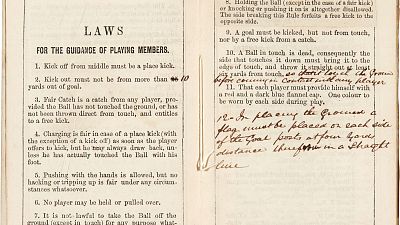 LAWS
FOR THE GUIDANCE OF PLAYING MEMBERS.
1. Kick off from middle must be a place kick.
2. Kick out must not be from more than 10
yards out of goal.
3. Fair Catch is a catch from any player, pro-
vided the Ball has not touched the ground, or has
not been thrown direct from touch, and entitles
to a free kick.
4. Charging is fair in case of a place kick (with
the exception of a kick off) as soon as the player
offers to kick, but he may always draw back, un-
less he has actually touched the Ball with his
foot.
5. Pushing with the hands is allowed, but no
hacking or tripping up is fair under any circum-
stances whatsoever.
6. No player may be held or pulled over.
7. It is not lawful to take the Ball off the
ground (except in touch) for any purpose what-
8. Holding the Ball (except in the case of a fair kick)
or knocking or pushing it on is altogether disallowed.
The side breaking this Rule forfeits a free kick to the
opposite side.
9. A goal must be kicked, but not from touch,
nor by a free kick from a catch.
10. A Ball in touch is dead, consequently the
side that touches it down must bring it to the
edge of touch, and throw it straight out at least
six yards from touch,
before coming in Contact with any player
11. That each player must provide himself with
a red and a dark blue flannel cap. One colour to
be worn by each side during play.
12 - In placing the Ground a
flag must be placed on each side
of the Goal posts at four yards
distance therefrom in a straight
line